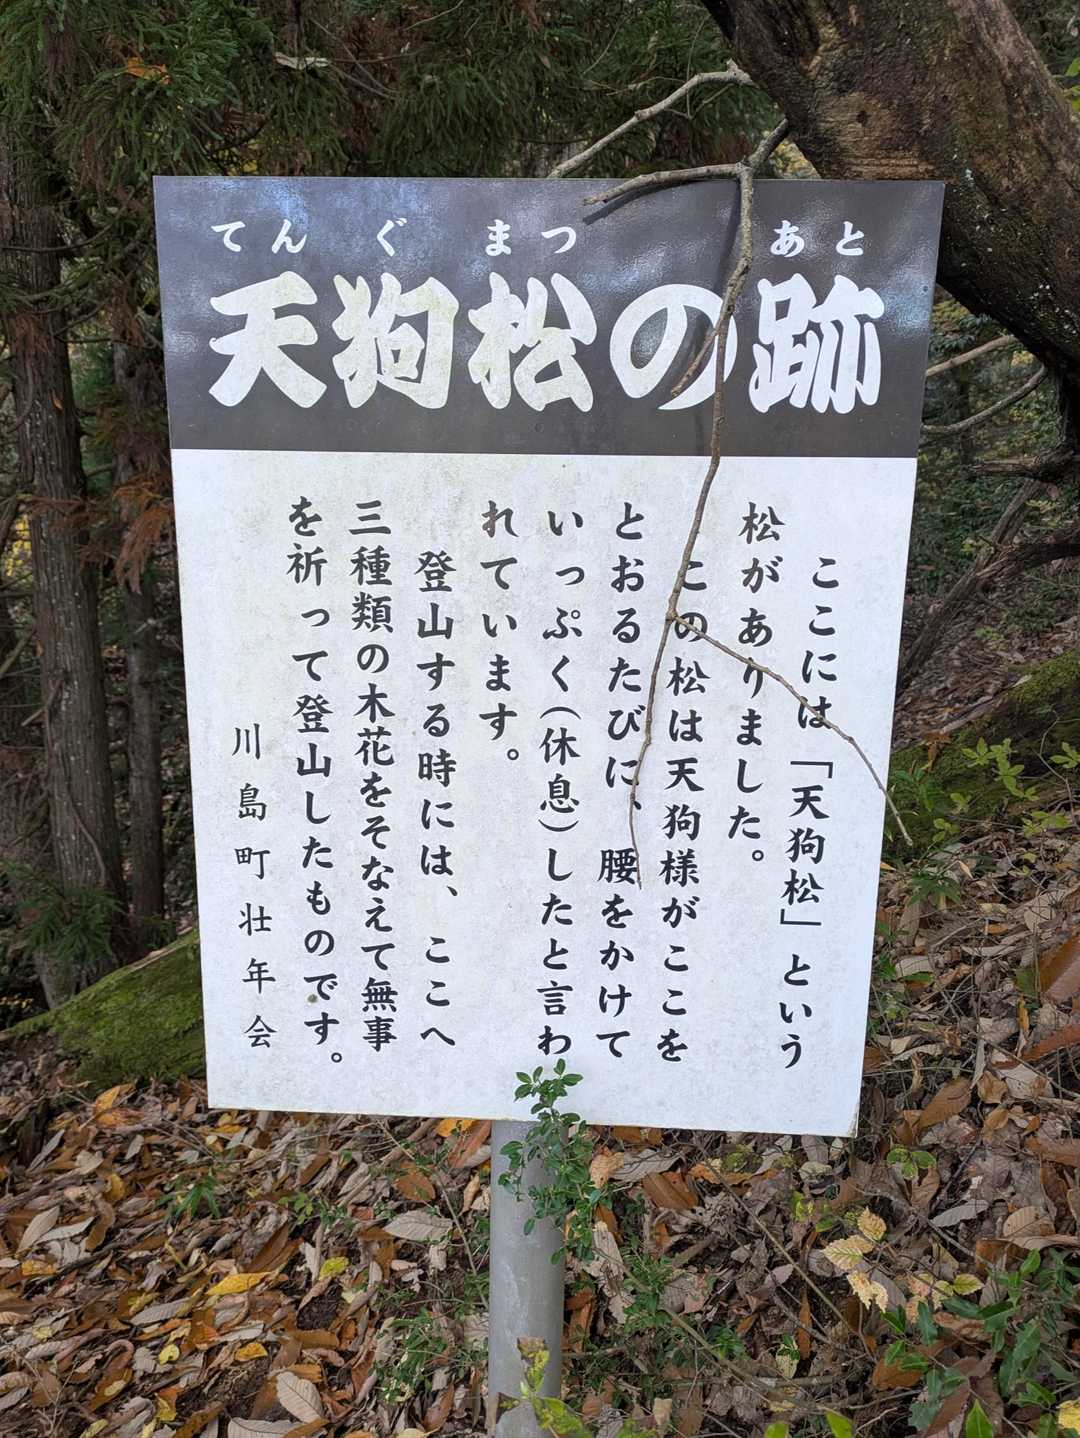 てんぐまつ あと
天狗松の跡
ここには「天狗松」という
松がありました。
この松は天狗様がここを
とおるたびに、腰をかけて
いっぷく(休息)したと言わ
れています。
登山する時には、ここへ
三種類の木花をそなえて無事
を祈って登山したものです。
川島町壮年会